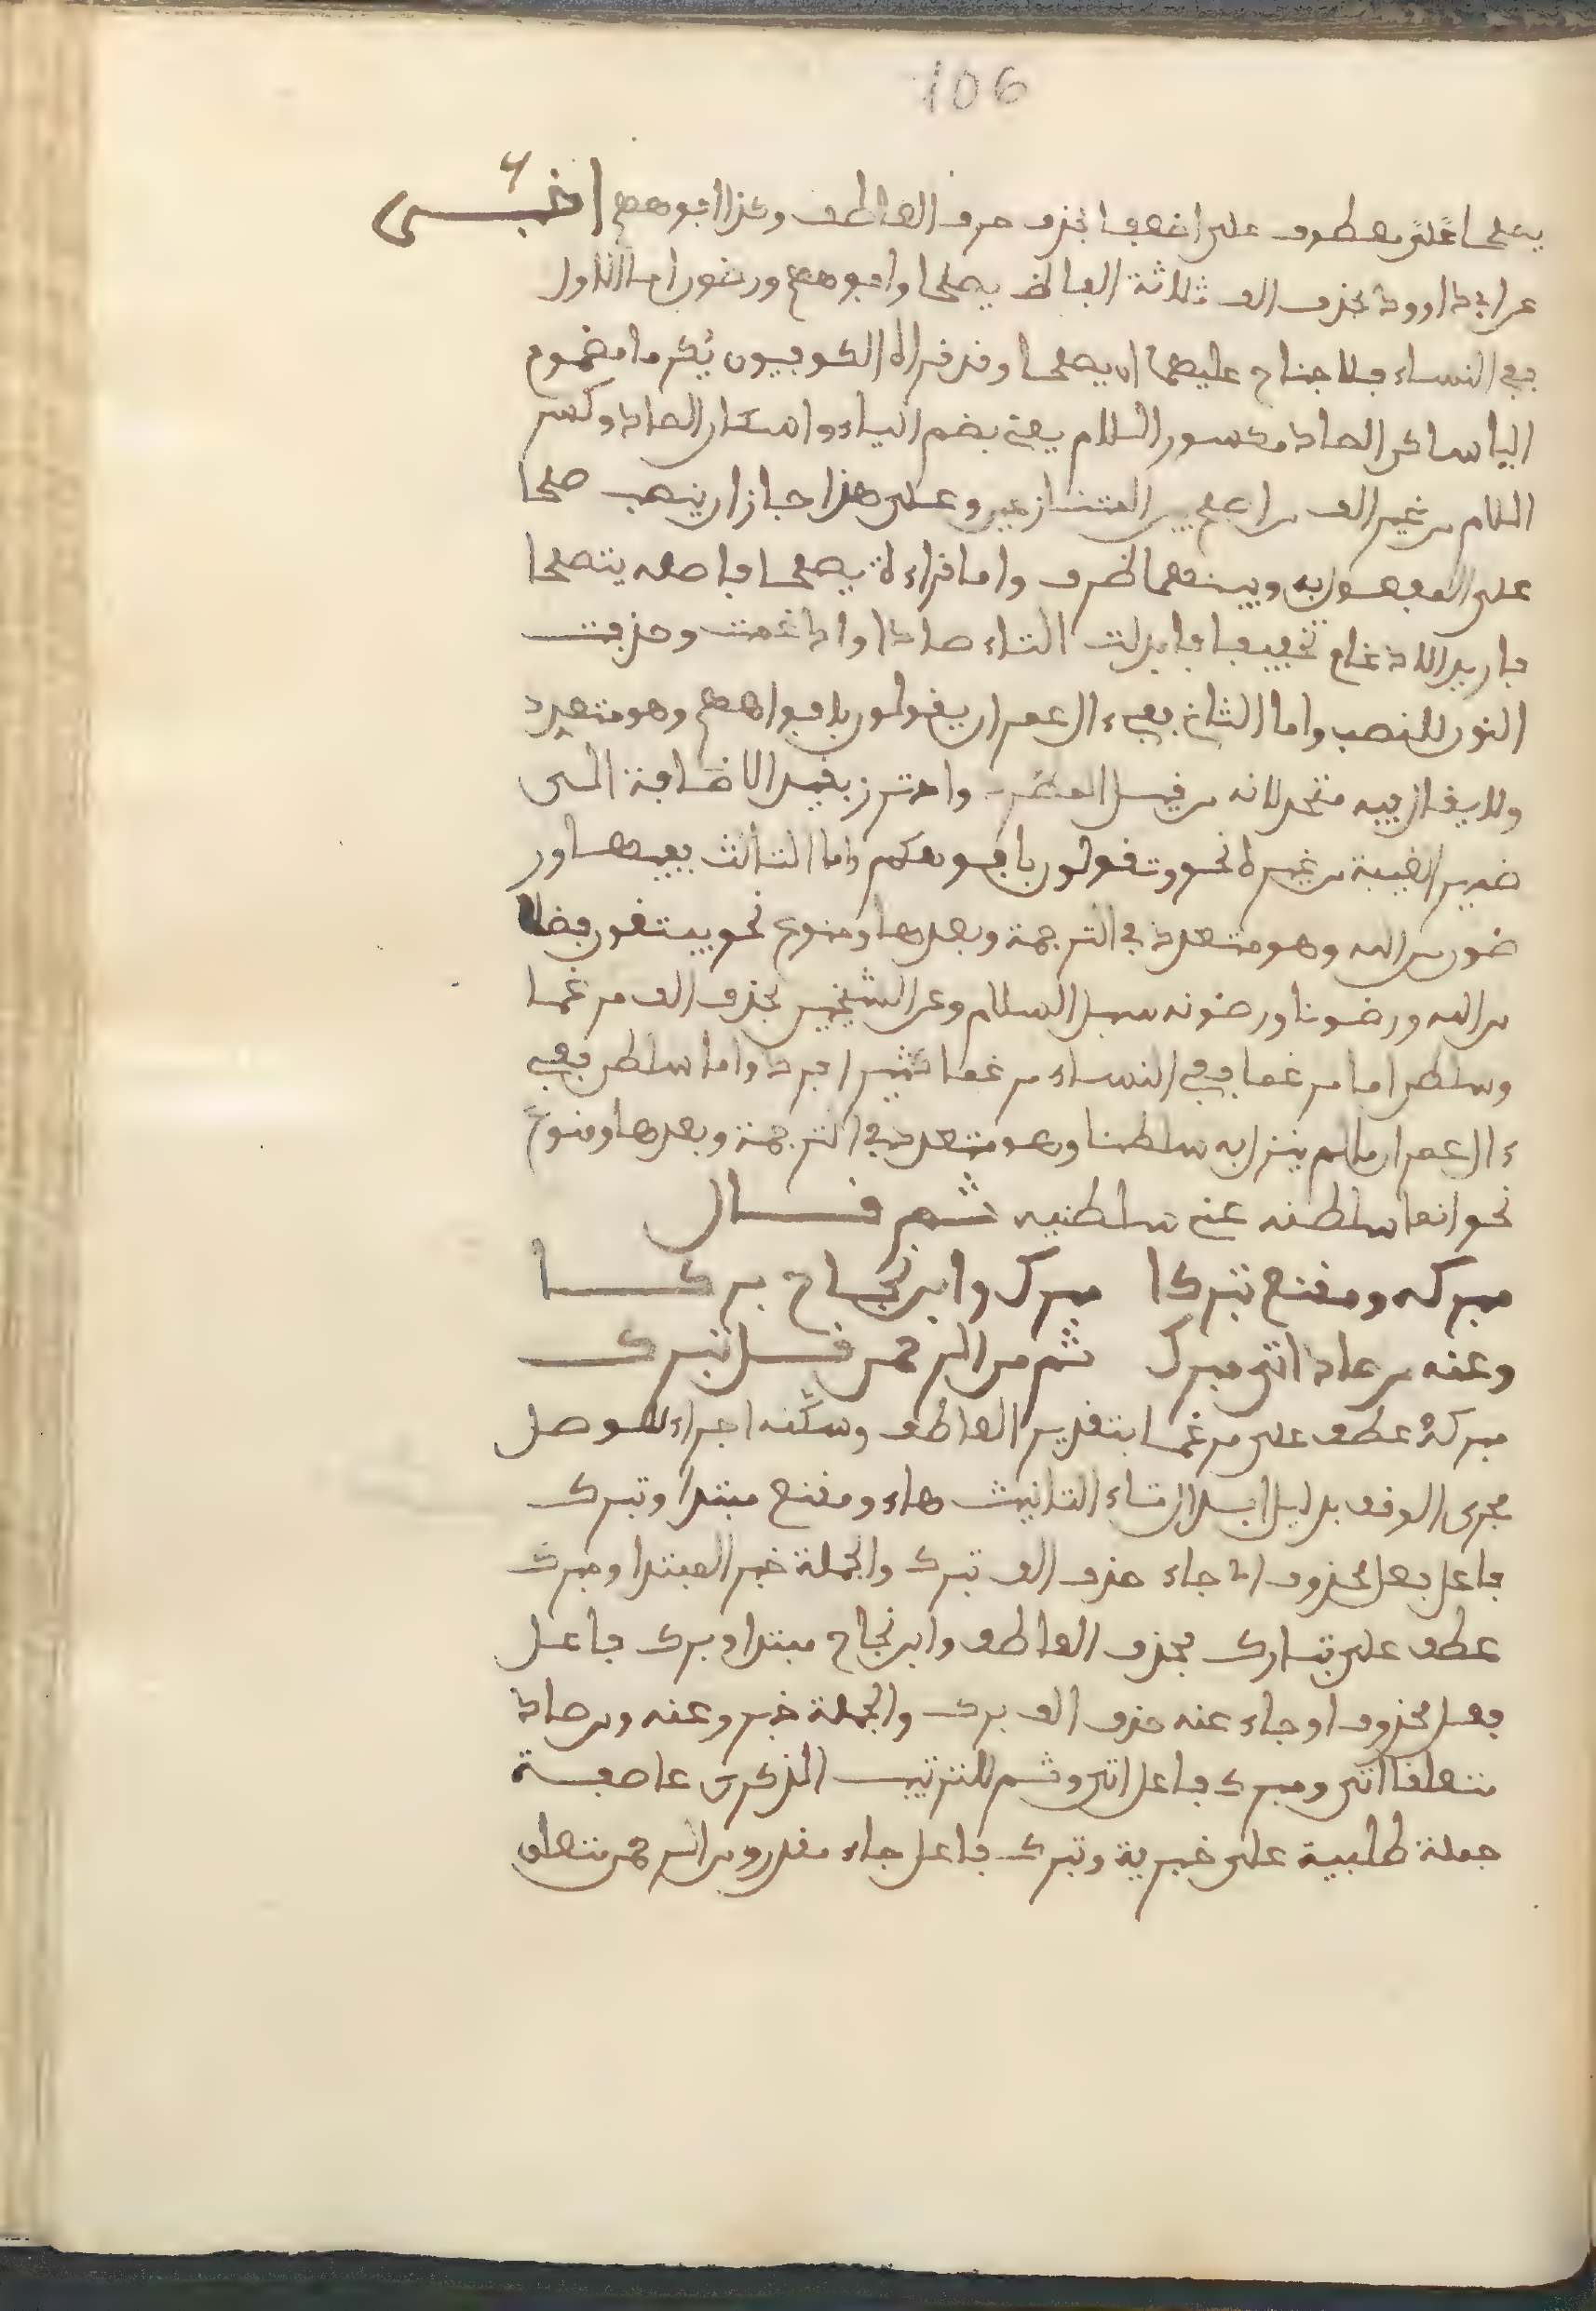 106
يصلحا على معطوف على اضعفا بحذف حرف العاطف وكذا افوههم اخبـــر
عن ابي داوود بحذف الف ثلاثة الفاظ يصلحا وافوههم ورضون اما الاول
ففي النساء فلا جناح عليهما ان يصلحا وقد قراه الكوفيون يُكرما مضموم
اليا ساكن الصاد مكسور اللام يعني بضم الياء واسكان الصاد وكسر
اللام من غير الف من اصلح بين المتنازعين وعلى هذا جاز ان ينصب صلحا
على المفعول به وبينهما ظرف واما قراءة يصلحا فاصله يتصلحا
فاريد الادغام تخفيفا فابدلت التاء صادا وادغمت وحذفت
النون للنصب واما الثاني ففي ءال عمران يقولون بافواههم وهو متعدد
ولا يقال فيه متحد لانه من قبيل واحترز بقيد الاضافة الى
ضمير الغيبة من غيره نحو وتقولون بافوهكم واما الثالث ففيها ور
ضون من الله وهو متعدد في الترجمة وبعدها ومنوع نحو يبتغون فضلا
من الله ورضونا ورضونه سبل السلام وعن الشيخين بحذف الف مرغما
وسلطن اما مرغما ففي النساء مرغما كثيرا مجرد واما سلطن ففي
ءال عمران مالم ينزل به سلطنا وهو متعدد في الترجمة وبعدها ومنوع
نحو انما سلطنه عني سلطنيه ثم قـــال
مبركه ومقنع تبركا مبرك وابن نجاح بركـــا
وعنه من صاد اتى مبرك ثم من الرحمن قل تبرك
مبركه عطف على مرغما بتقدير العاطف وسكنه اجراء للوصل
مجرى الوقف بدليل ابدال تاء التانيث هاء ومقنع مبتدا وتبرك
فاعل بفعل محذوف اي جاء حذف الف تبرك والجملة خبر المبتدا ومبرك
عطف على تبارك بحذف العاطف وابن نجاح مبتدا وبرك فاعل
بفعل محذوف او جاء عنه حذف الف برك والجملة خبر وعنه ومن صاد
متعلقا اتى ومبرك فاعل اتى وثم للترتيب الذكرى عاطفة
جملة طلبية على خبرية وتبرك فاعل جاء مقدر ومن الرحمن متعلق